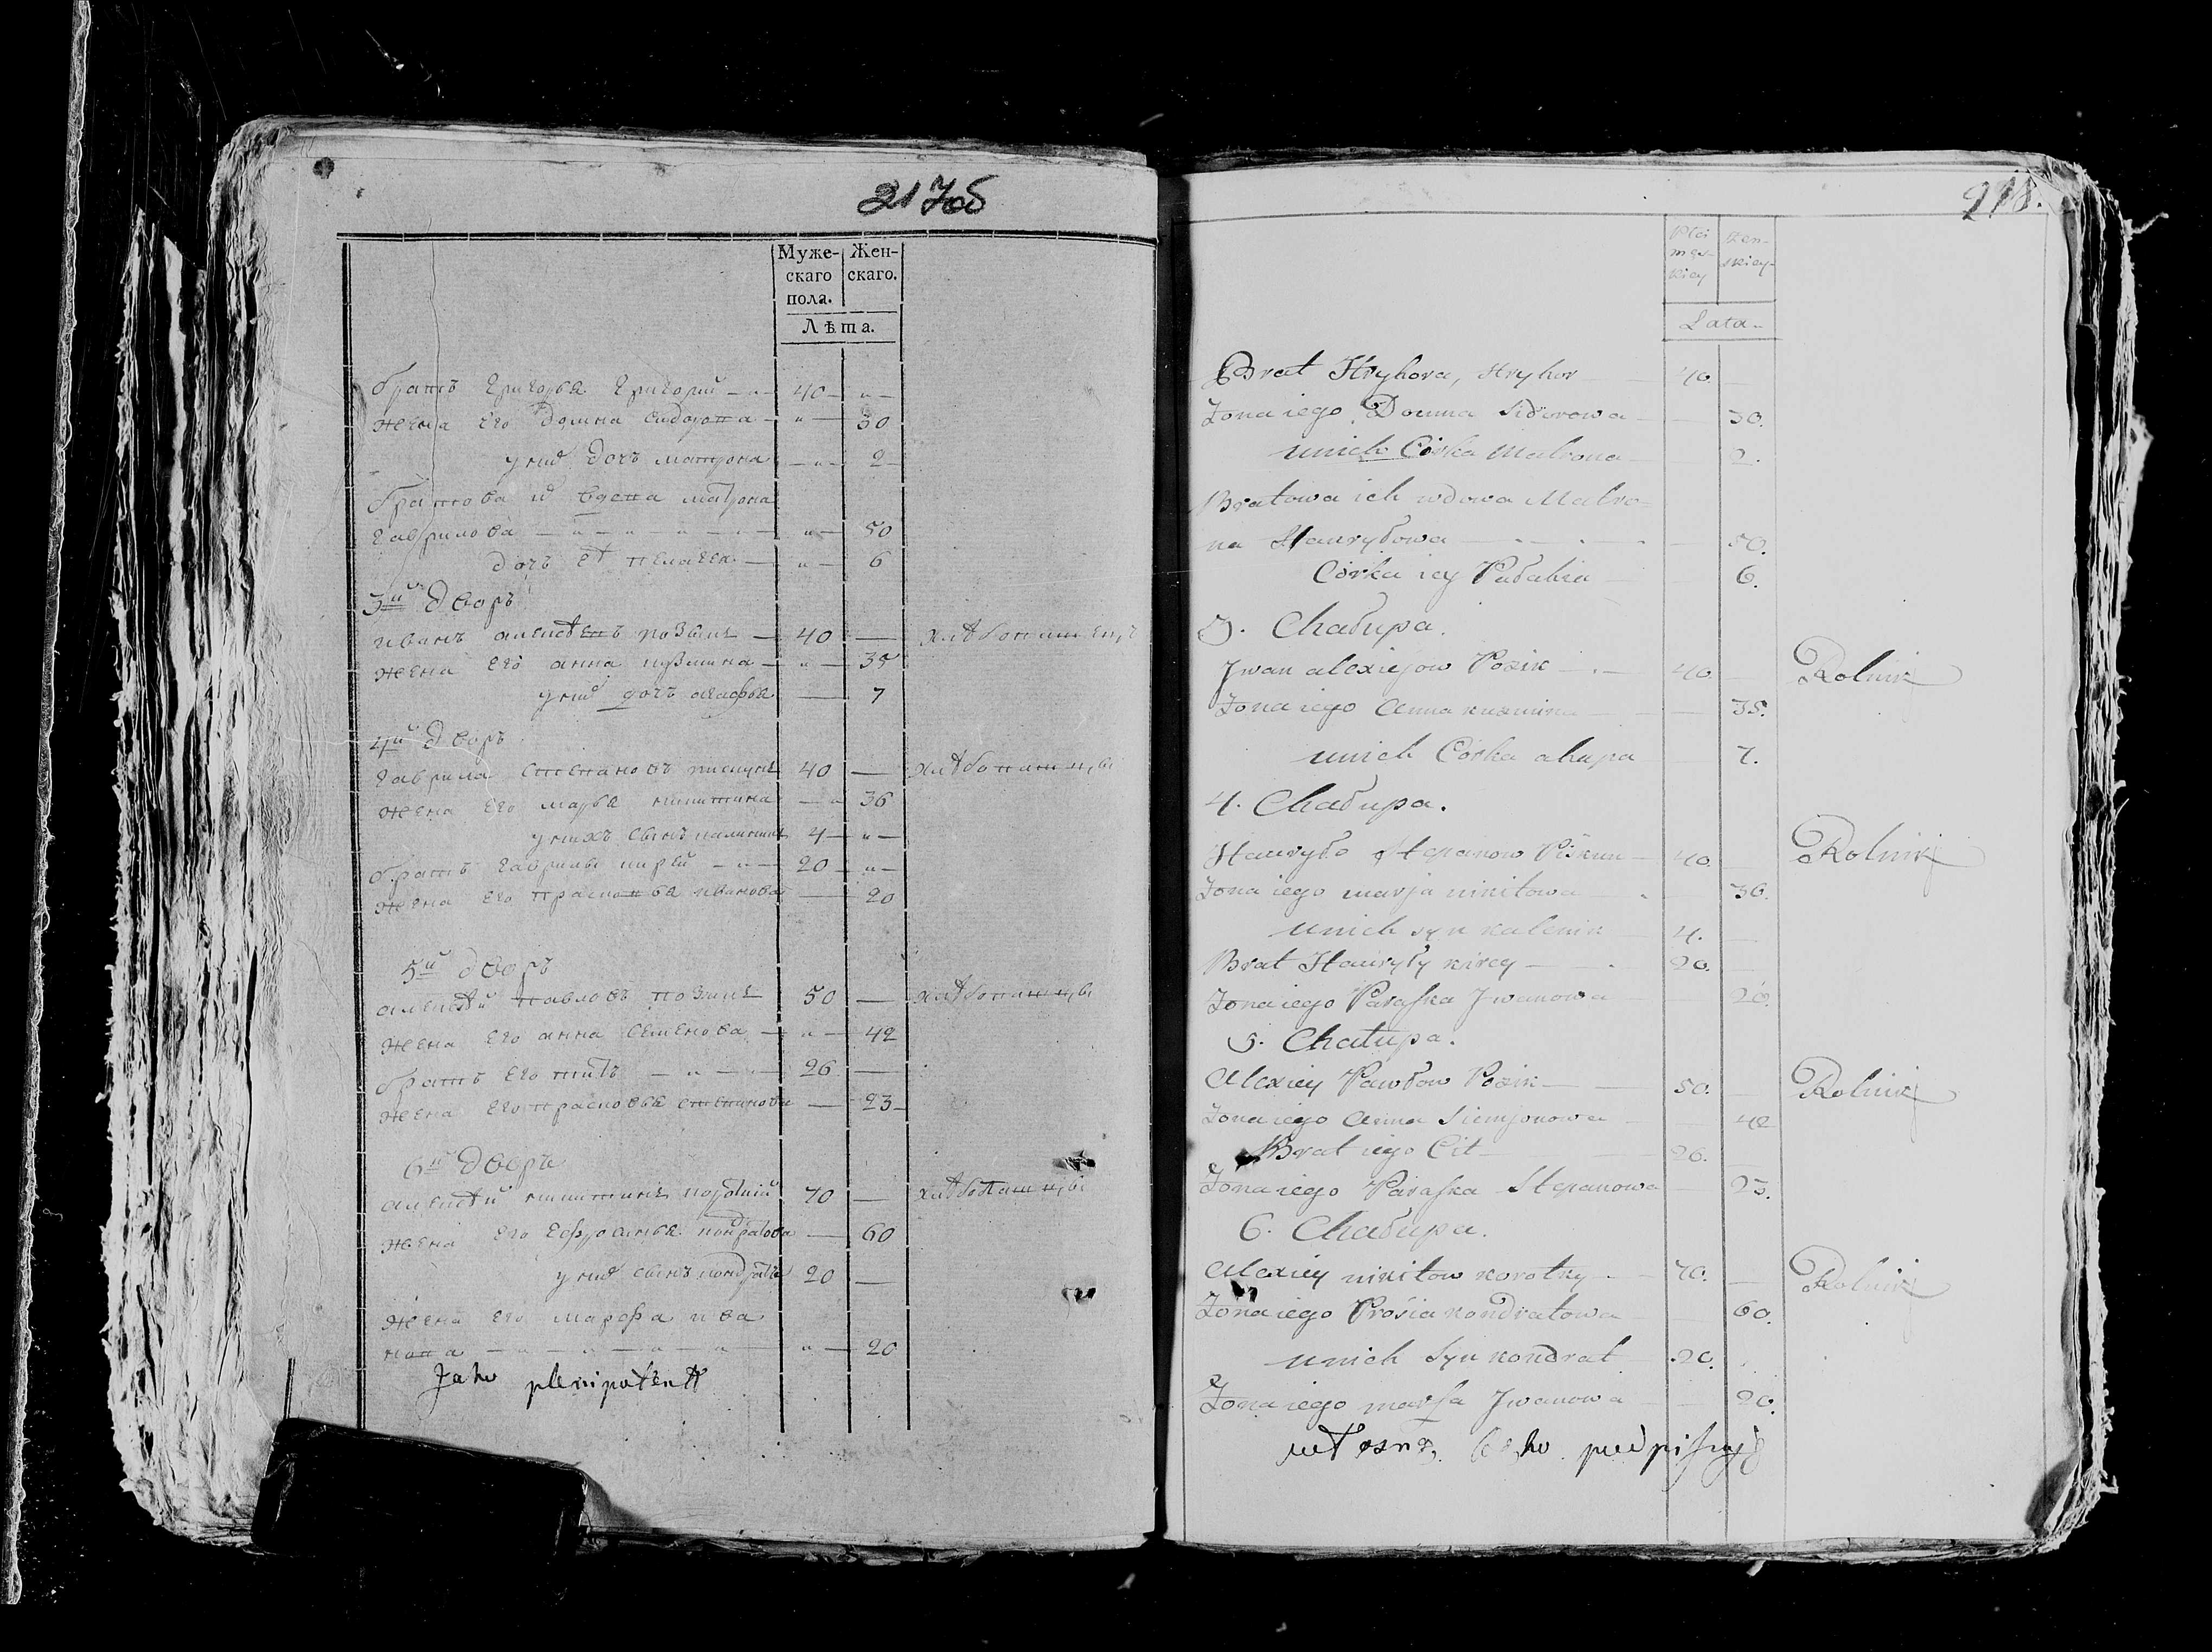 217об
Муже-
скаго
пола.
Жен-
скаго.
Лѣта.
братъ Григорья Григорий 40
жена его Домна Сидорова 30
у них дочь матрона 2
братова их вдова матрона
гаврилова 50
дочь еѣ пелагея 6
3й дворъ
иванъ алексѣевъ позыкъ 40 хлѣбопашецъ
жена его анна кузмина 35
у них дочь агафья 7
4й дворъ
гаврила степановъ пискунъ 40 хлѣбопашцы
жена его марья никитина 36
у нихъ сынъ калиникъ 4
братъ гаврилы кирей 20
жена его прасковья иванова 20
5й дворъ
алексѣй павловъ позыкъ 50 хлѣбопашцы
жена его анна семенова 42
братъ его титъ 26
жена его прасковья степанова 23
6й дворъ
алексѣй никитинъ короткий 70 хлѣбопашцы
жена его ефросинья кондратова 60
у них сынъ кондратъ 20
жена его марфа ива
нова 20
Jako plenipotent
218.
Płci
męs-
kiey
żen-
skiey
Lata
Brat Hryhora, Hryhor 40.
Żona iego Domna Sidorowa 30.
unich Córka Matrona 2.
Bratowa ich wdowa Matro=
na Hawryłowa 50.
Córka iey Pałahia 6.
3. Chałupa.
Jwan alexiejow Pozik 40. Rolnik
Żona iego Anna kuzmina 35.
unich Córka ahapa 7.
4. Chałupa.
Hawryło Stepanow Piskun 40. Rolnik
Żona iego marja nikitowa 36.
unich syn kalenik 4.
Brat Hawryły kirey 20.
Żona iego Paraska Jwanowa 20.
5. Chałupa.
Alexiey Pawłow Pozik 50. Rolnik
Żona iego Anna Siemjonowa 42
Brat iego Cit 26.
Żona iego Paraska Stepanowa 23.
6. Chałupa.
Alexiey nikitow korotky 70. Rolnik
Żona iego Prosia kondratowa 60.
unich Syn kondrat 20.
Żona iego marfa Jwanowa 20.
podpisuję